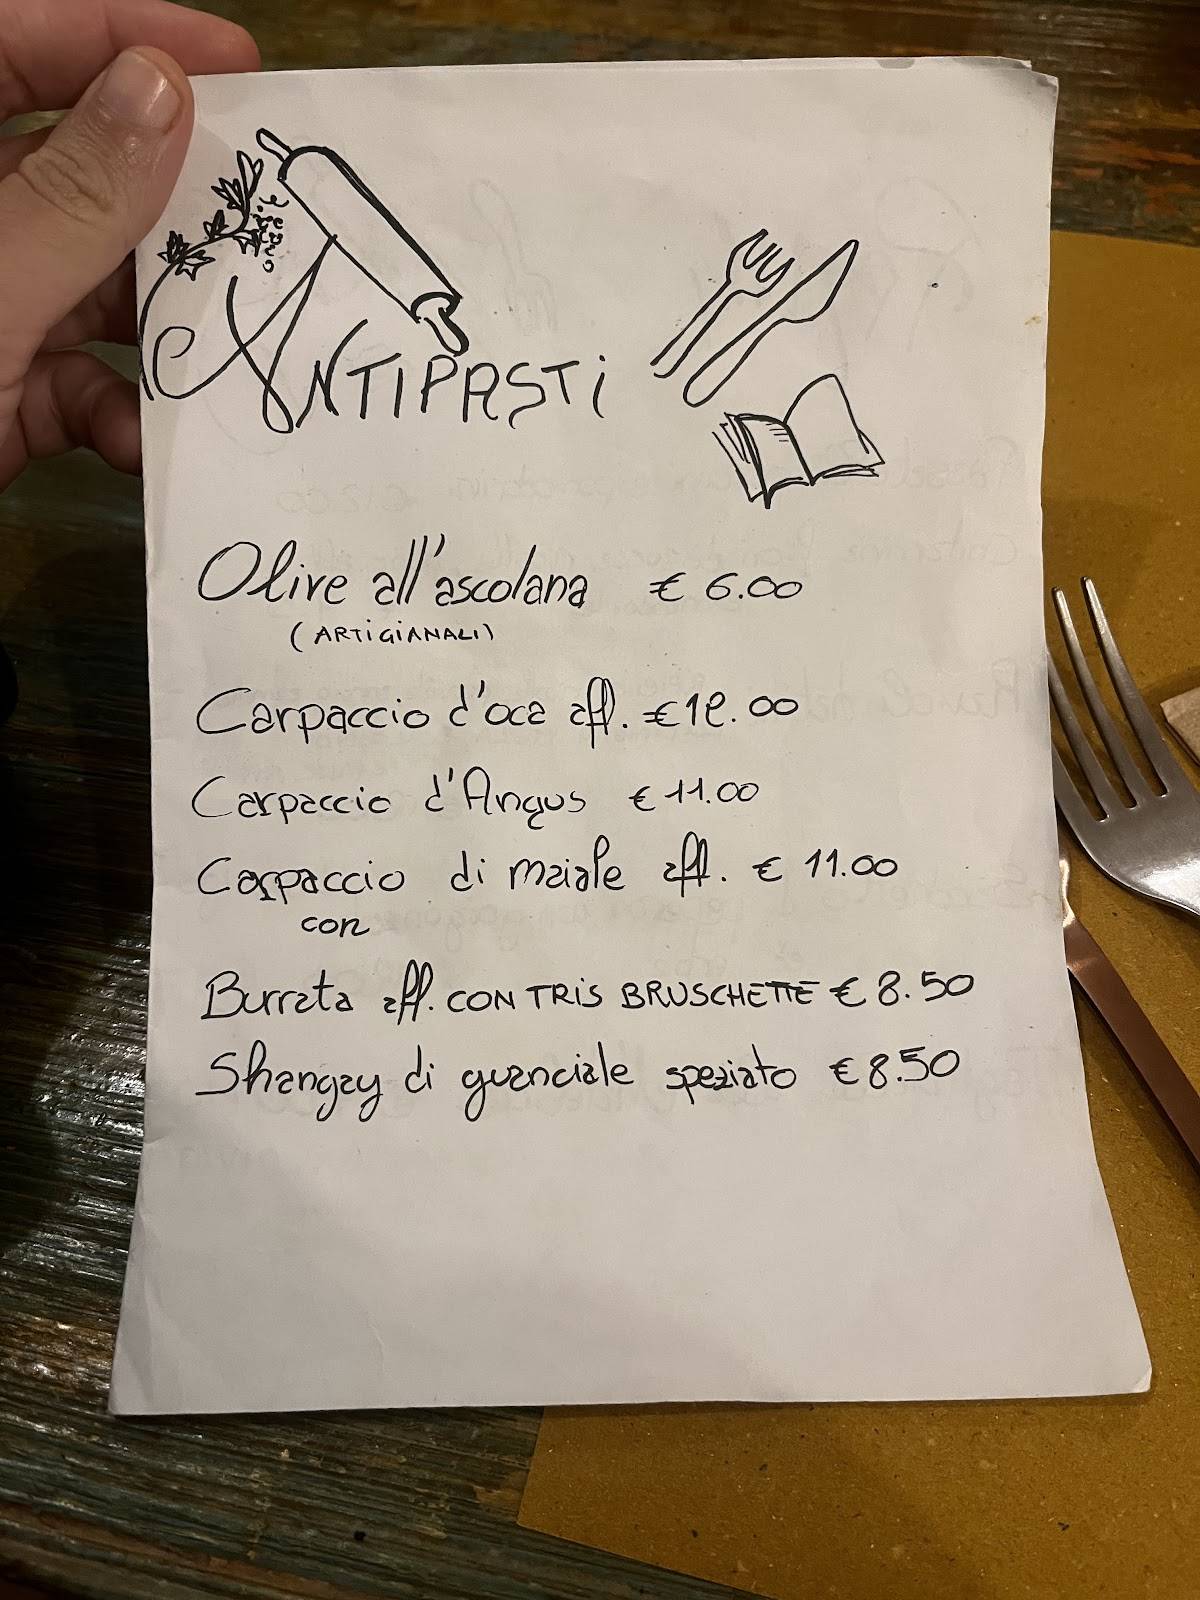 ANTIPASTi
Olive all'ascolana € 6.00
(ARTiGiANALi)
Carpaccio d'oca aff. € 12.00
Carpaccio d'Angus € 11.00
Carpaccio di maiale aff. € 11.00
con
Burrata aff. CON TRiS BRUSCHETTE € 8.50
Shangay di guanciale speziato € 8.50